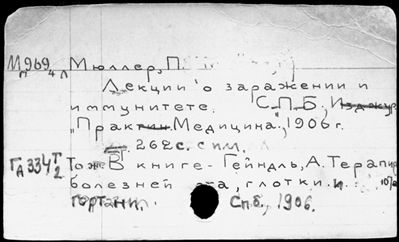 М969 л Мюллер, П.
Лекции о заражении и
иммунитете. С.П.Б., Изд. жур.
"Практич. Медицина", 1906 г.
262 с. с им.
Тоже В книге - Гейндль, А. Терапия
болезней рта, глотки и
гортани. Спб., 1906.